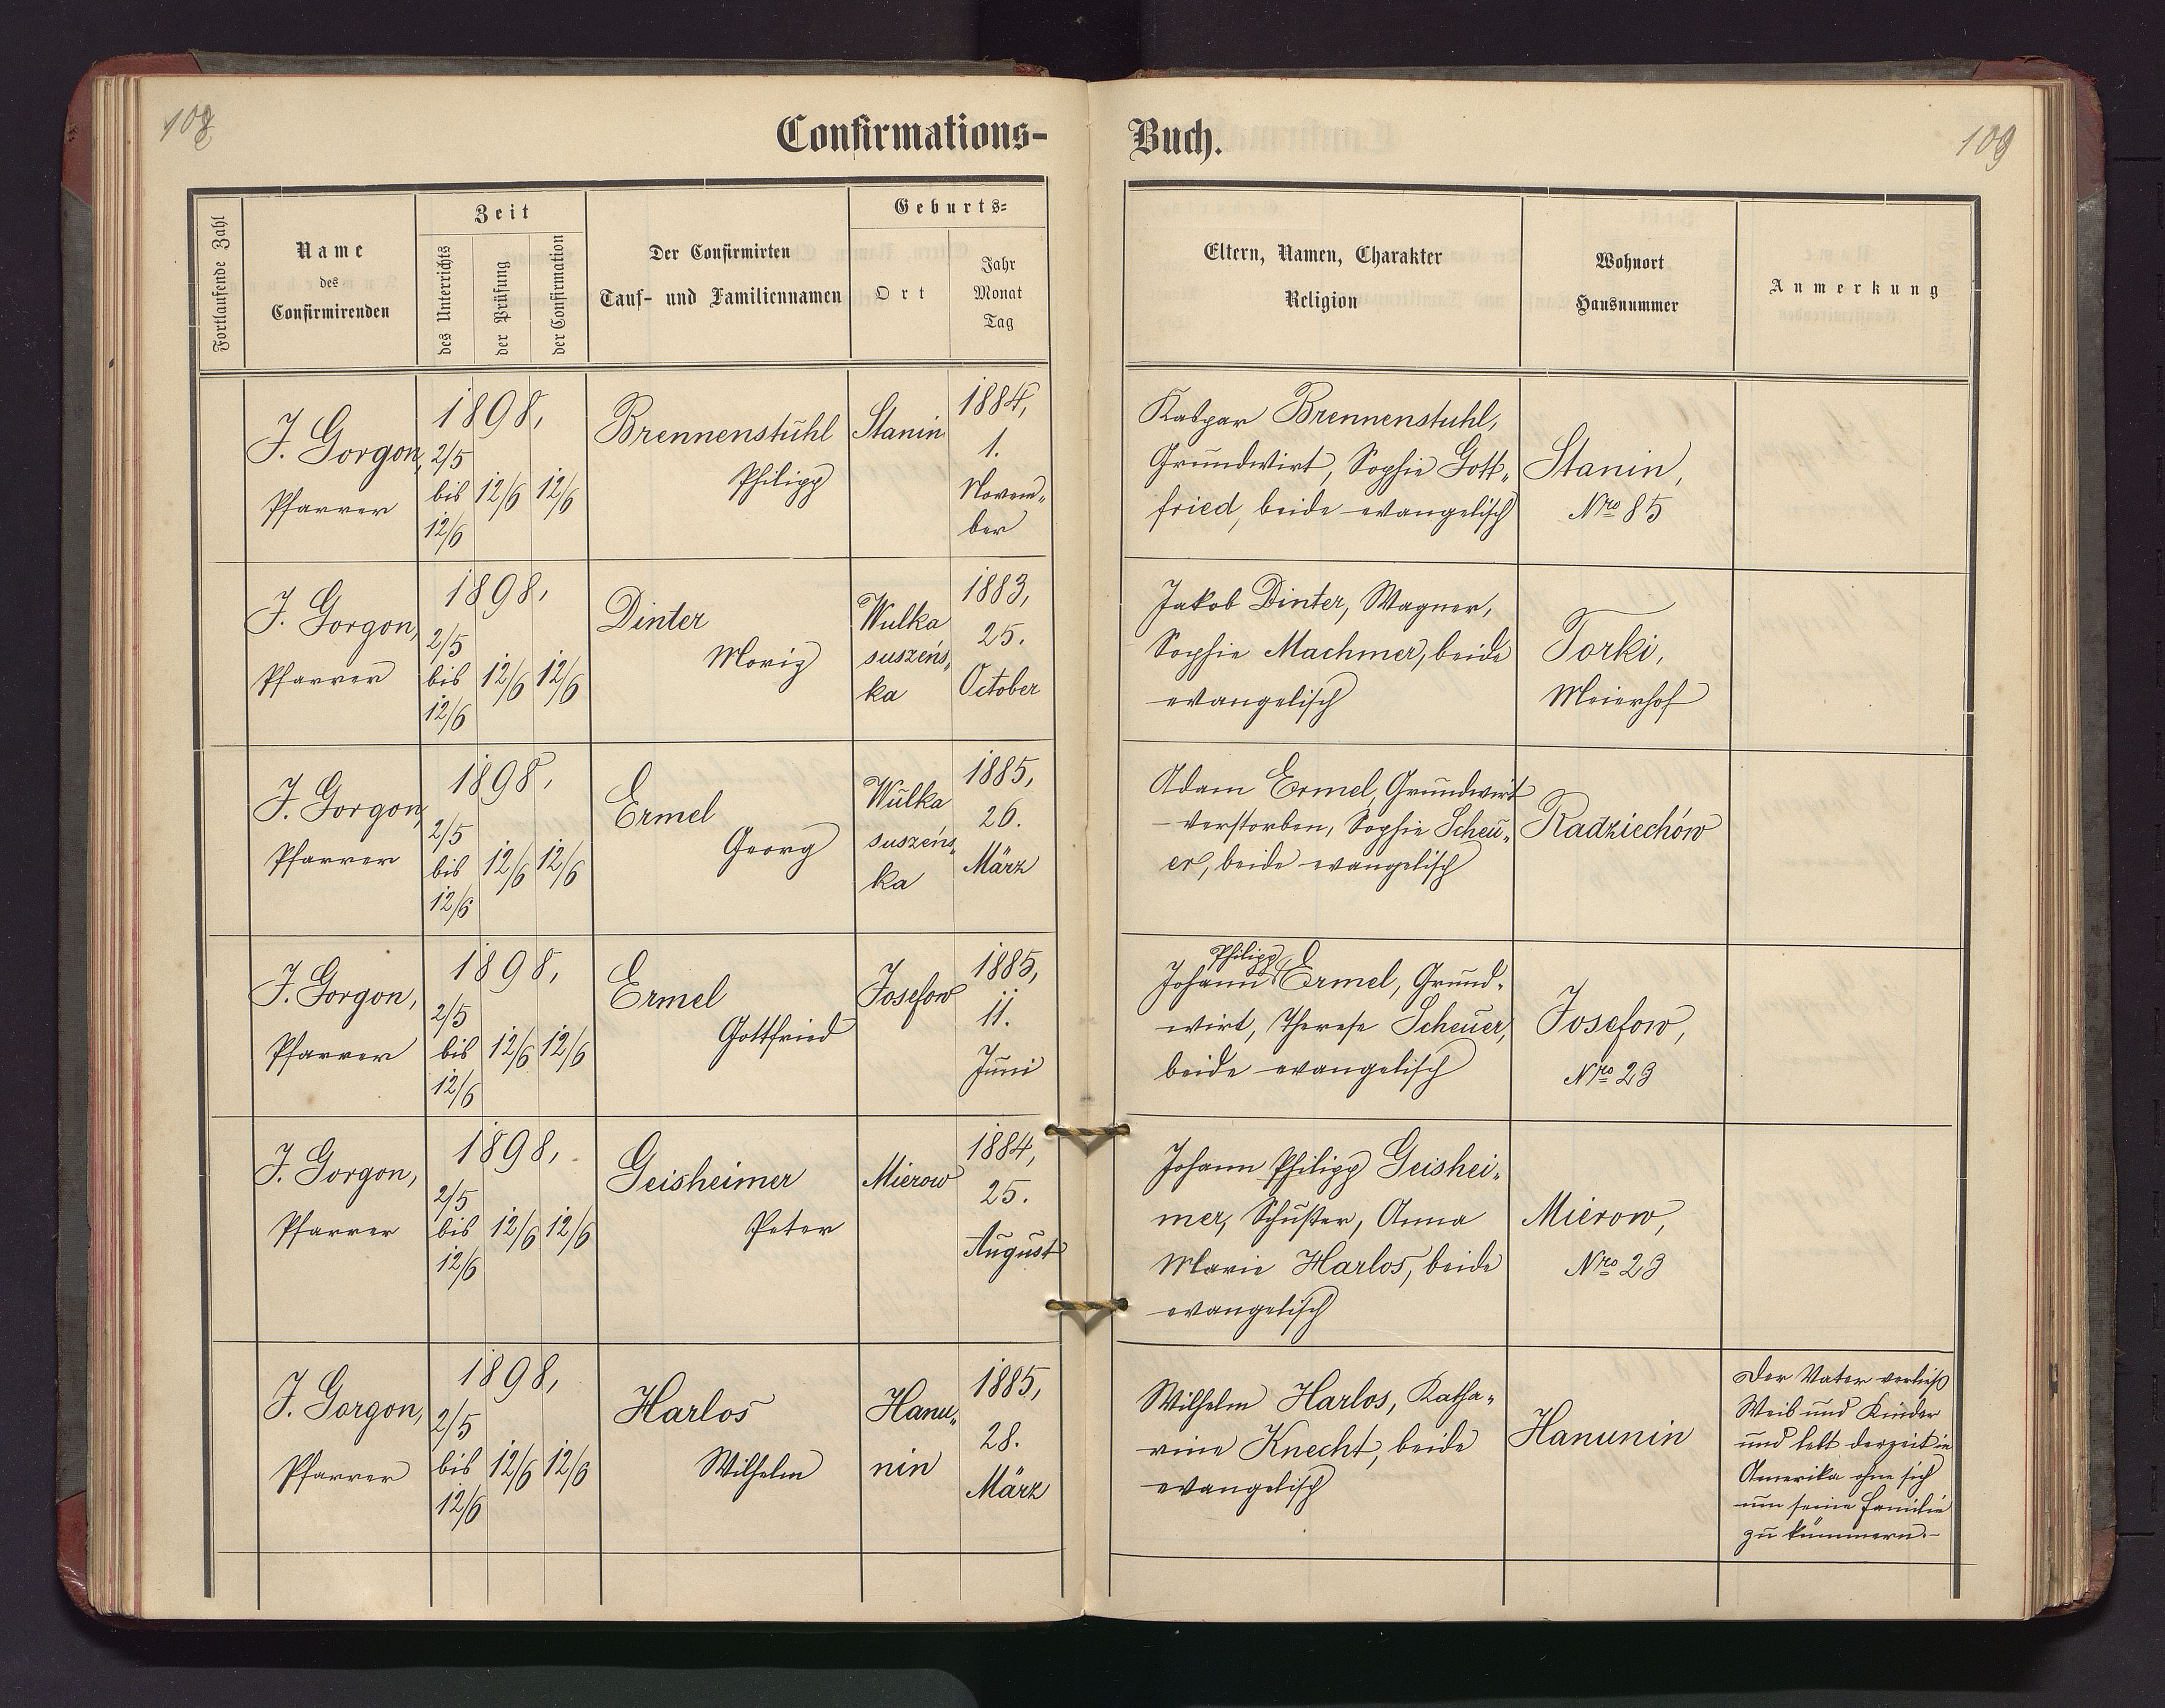 108
109
Confirmations-
Buch.
Fortlaufende Zahl
Name
des
Confirmirenden
Zeit
des Unterrichts
der Prüfung
der Confirmation
Der Confirmirten
Tauf- und Familiennamen
Geburts-
Ort
Jahr
Monat
Tag
Eltern, Namen, Charakter
Religion
Wohnort
Hausnummer
Anmerkung
J. Gorgon,
Pfarrer
1898,
2/5
bis 12/6 12/6
12/6
Brennenstuhl
Philipp
Stanin
1884,
1.
Novem-
ber
Kaspar Brennenstuhl,
Grundwirt, Sophie Gott-
fried, beide evangelisch
Stanin,
Nro 85
J. Gorgon,
Pfarrer
1898,
2/5
bis 12/6 12/6
12/6
Dinter
Moriz
Wulka
suszeńs-
ka
1883,
25.
October
Jakob Dinter, Wagner,
Sophie Machmer, beide
evangelisch
Torki,
Meierhof
J. Gorgon,
Pfarrer
1898,
2/5
bis 12/6 12/6
12/6
Ermel
Georg
Wulka
suszeńs-
ka
1885,
26.
März
Adam Ermel, Grundwirt
verstorben, Sophie Scheu-
er, beide evangelisch
Radziechów
J. Gorgon,
Pfarrer
1898,
2/5
bis 12/6 12/6
12/6
Ermel
Gottfried
Josefow
1885,
11.
Juni
Philipp
Johann Ermel, Grund-
wirt, Therese Scheuer,
beide evangelisch
Josefow,
Nro 23
J. Gorgon,
Pfarrer
1898,
2/5
bis 12/6 12/6
12/6
Geisheimer
Peter
Mierow
1884,
25.
August
Johann Philipp Geishei-
mer, Schuster, Anna
Marie Harlos, beide
evangelisch
Mierow,
Nro 23
J. Gorgon,
Pfarrer
1898,
2/5
bis 12/6 12/6
12/6
Harlos
Wilhelm
Hanu-
nin
1885,
28.
März
Wilhelm Harlos, Katha-
rine Knecht, beide
evangelisch
Hanunin
Der Vater verließ
Weib und Kinder
und lebt derzeit in
Amerika ohne sich
um seine Familie
zu kümmern.-